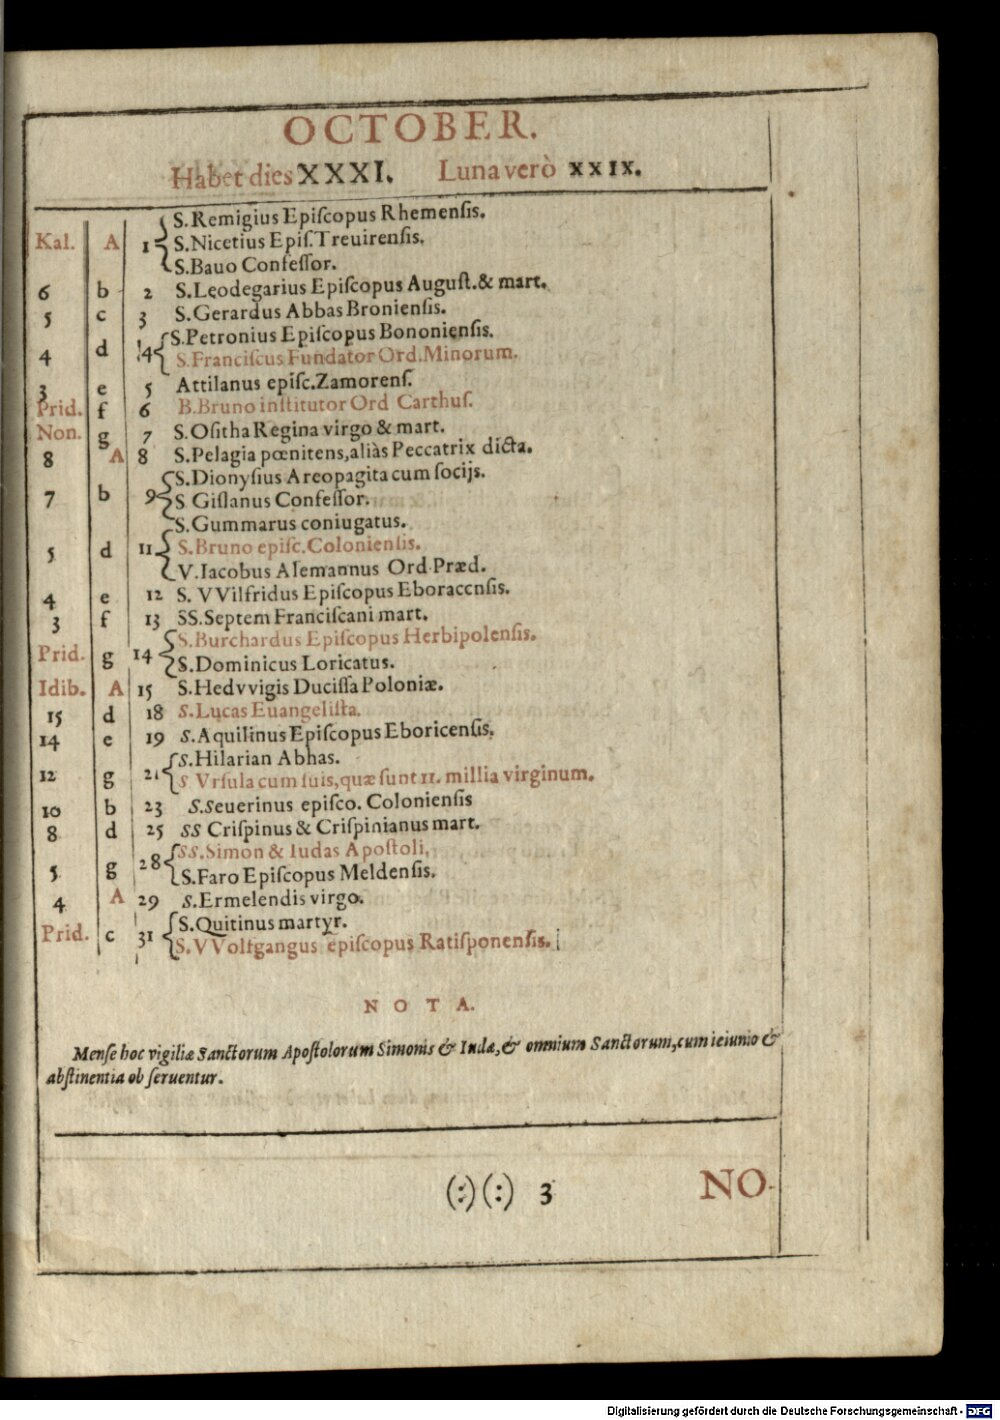 OCTOBER.
Habet dies XXXI. Luna verò XXIX.
S. Remigius Epiſcopus Rhemenſis.
Kal. A 1 S. Nicetius Epiſ. Treuirenſis.
S. Bauo Confeſſor.
6 b 2 S. Leodegarius Epiſcopus Auguſt. & mart.
5 c 3 S. Gerardus Abbas Bronienſis.
S. Petronius Epiſcopus Bononienſis.
4 d 4 S. Franciſcus Fundator Ord. Minorum.
3 e 5 Attilanus epiſc. Zamorenſ.
Prid. f 6 B. Bruno inſtitutor Ord Carthuſ.
Non. g 7 S. Oſitha Regina virgo & mart.
8 A 8 S. Pelagia pœnitens, aliàs Peccatrix dicta.
S. Dionyſius Areopagita cum ſocijs.
7 b 9 S Giſlanus Confeſſor.
S. Gummarus coniugatus.
5 d 11 S. Bruno epiſc. Colonienſis.
V. Iacobus Alemannus Ord Præd.
4 e 12 S. VVilfridus Epiſcopus Eboracenſis.
3 f 13 SS. Septem Franciſcani mart.
S. Burchardus Epiſcopus Herbipolenſis.
Prid. g 14 S. Dominicus Loricatus.
Idib. A 15 S. Hedvvigis Duciſſa Poloniæ.
15 d 18 S. Lucas Euangeliſta.
14 e 19 S. Aquilinus Epiſcopus Eboricenſis.
S. Hilarian Abbas.
12 g 21 S Vrſula cum ſuis, quæ ſunt 11. millia virginum.
10 b 23 S. Seuerinus epiſco. Colonienſis
8 d 25 SS Criſpinus & Criſpinianus mart.
SS. Simon & Iudas Apoſtoli.
5 g 28 S. Faro Epiſcopus Meldenſis.
4 A 29 S. Ermelendis virgo.
S. Quitinus martyr.
Prid. c 31 S. VVolfgangus epiſcopus Ratiſponenſis.
NOTA.
Menſe hoc vigiliæ Sanctorum Apoſtolorum Simonis & Iudæ, & omnium Sanctorum, cum ieiunio &
abſtinentia ob ſeruentur.
(:)(:) 3 NO-
Digitalisierung gefördert durch die Deutsche Forschungsgemeinschaft - DFG